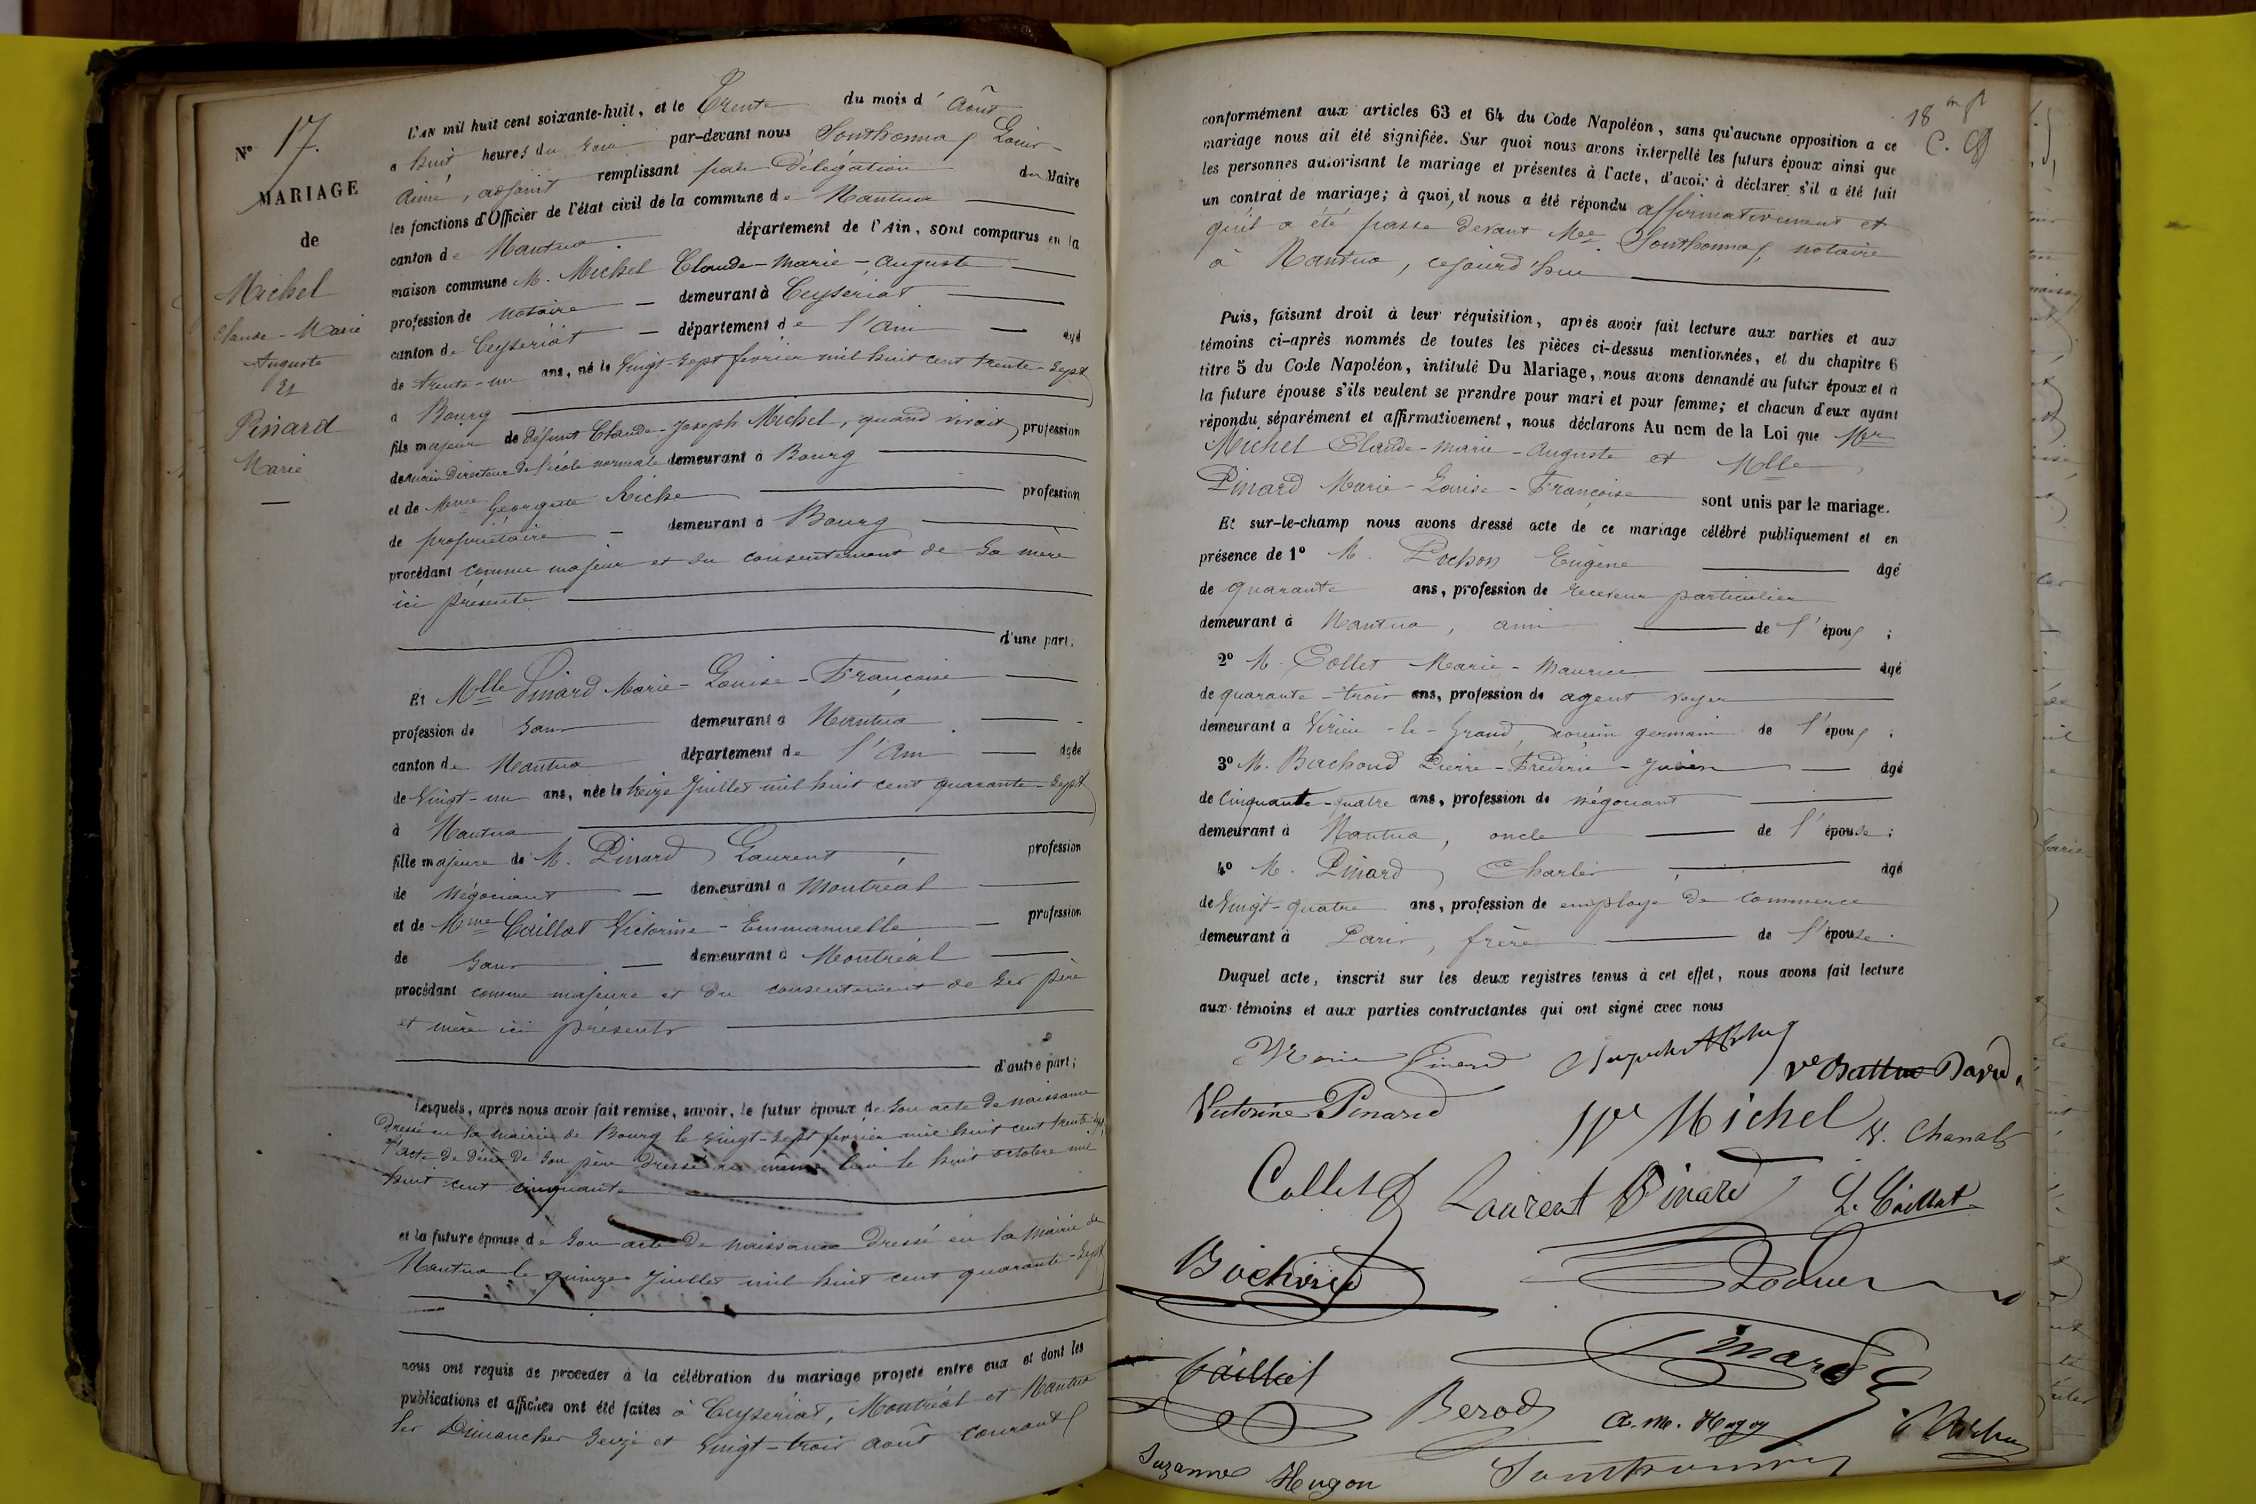 N° 17.
MARIAGE
de
Michel
Claude-Marie
Auguste
Et
Pinard
Marie
L'AN mil huit cent soixante-huit, et le Trente du mois d'Août
a huit heures du soir par-devant nous Sonthonnax Louis-
Aimé, adjoint remplissant par Délégation du Maire
les fonctions d'Officier de l'état civil de la commune de Nantua
canton de Nantua département de l'Ain, sont comparus en la
maison commune M. Michel Claude-Marie-Auguste
profession de notaire demeurant à Ceyseriat
canton de Ceyseriat département de l'Ain agé
de trente-un ans, né le Vingt-Sept février mil huit cent trente-Sept
a Bourg
fils majeur de défunt Claude-Joseph Michel, quand vivait profession
demeurant à Bourg
et de Mme Georgette Riche profession
de propriétaire demeurant à Bourg
procédant comme majeur et du consentement de Sa mère
ici présente
d'une part.
Et Mlle Pinard Marie-Louise-Françoise
profession de Sans demeurant a Nantua
canton de Nantua département de l'Ain agée
de Vingt-un ans, née le treize Juillet mil huit cent quarante-Sept
à Nantua
fille majeure de M. Pinard Laurent, profession
de négociant demeurant a Montréal
et de Mme Caillat Victorine-Emmanuelle profession
de Sans demeurant à Montréal
procédant comme majeure et du consentement de Ses père
et mère ici présents
d'autre part;
Lesquels, après nous avoir fait remise, savoir, le futur époux de Son acte de naissance
Dressé en la mairie de Bourg le vingt-Sept février mil huit cent trente-Sept
2° acte de Décès de Son père Dressé au même lieu le huit octobre mil
huit cent cinquante
et la future épouse de Son acte de naissance Dressé en la Mairie de
Nantua le quinze Juillet mil huit cent quarante-Sept
nous ont requis de proceder à la célébration du mariage projeté entre eux et dont les
publications et affiches ont été faites à Ceyseriat, Montréal et Nantua
les Dimanches Seize et Vingt-trois août courant
18
conformément aux articles 63 et 64 du Code Napoléon, sans qu'aucune opposition a ce
mariage nous ait été signifiée. Sur quoi nous avons interpellé les futurs époux ainsi que
les personnes autorisant le mariage et présentes à l'acte, d'avoir à déclarer s'il a été fait
un contrat de mariage; à quoi, il nous a été répondu affirmativement et
qu'il a été passé devant Mee Sonthonnax, notaire
à Nantua, cejourd'hui
Puis, faisant droit à leur réquisition, après avoir fait lecture aux parties et aux
témoins ci-après nommés de toutes les pièces ci-dessus mentionnées, et du chapitre 6
titre 5 du Code Napoléon, intitulé Du Mariage, nous avons demandé au futur époux et à
la future épouse s'ils veulent se prendre pour mari et pour femme; et chacun d'eux ayant
répondu séparément et affirmativement, nous déclarons Au nom de la Loi que Mr
Michel Claude-Marie-Auguste et Mlle
Pinard Marie-Louise-Françoise sont unis par le mariage.
Et sur-le-champ nous avons dressé acte de ce mariage célébré publiquement et en
présence de 1° M. Pochon Eugène âgé
de quarante ans, profession de receveur particulier
demeurant à Nantua, ami de l'époux;
2° M. Collet Marie-Maurice agé
de quarante-trois ans, profession de agent voyer
demeurant a Virieu-le-Grand, cousin germain de l'époux;
3° M. Bachoud Pierre-Frédéric- agé
de Cinquante-quatre ans, profession de négociant
demeurant à Nantua, oncle de l'épouse;
4° M. Pinard Charles, agé
de Vingt-quatre ans, profession de employé de commerce
demeurant à Paris, frère de l'épouse.
Duquel acte, inscrit sur les deux registres tenus à cet effet, nous avons fait lecture
aux témoins et aux parties contractantes qui ont signé avec nous
Marie Pinard
Victorine Pinard
Ve Michel
Collet
Laurent Pinard
L. Caillat
Bachoud
Pinard
Caillat
Berod
Suzanne Hugon
Sonthonnax